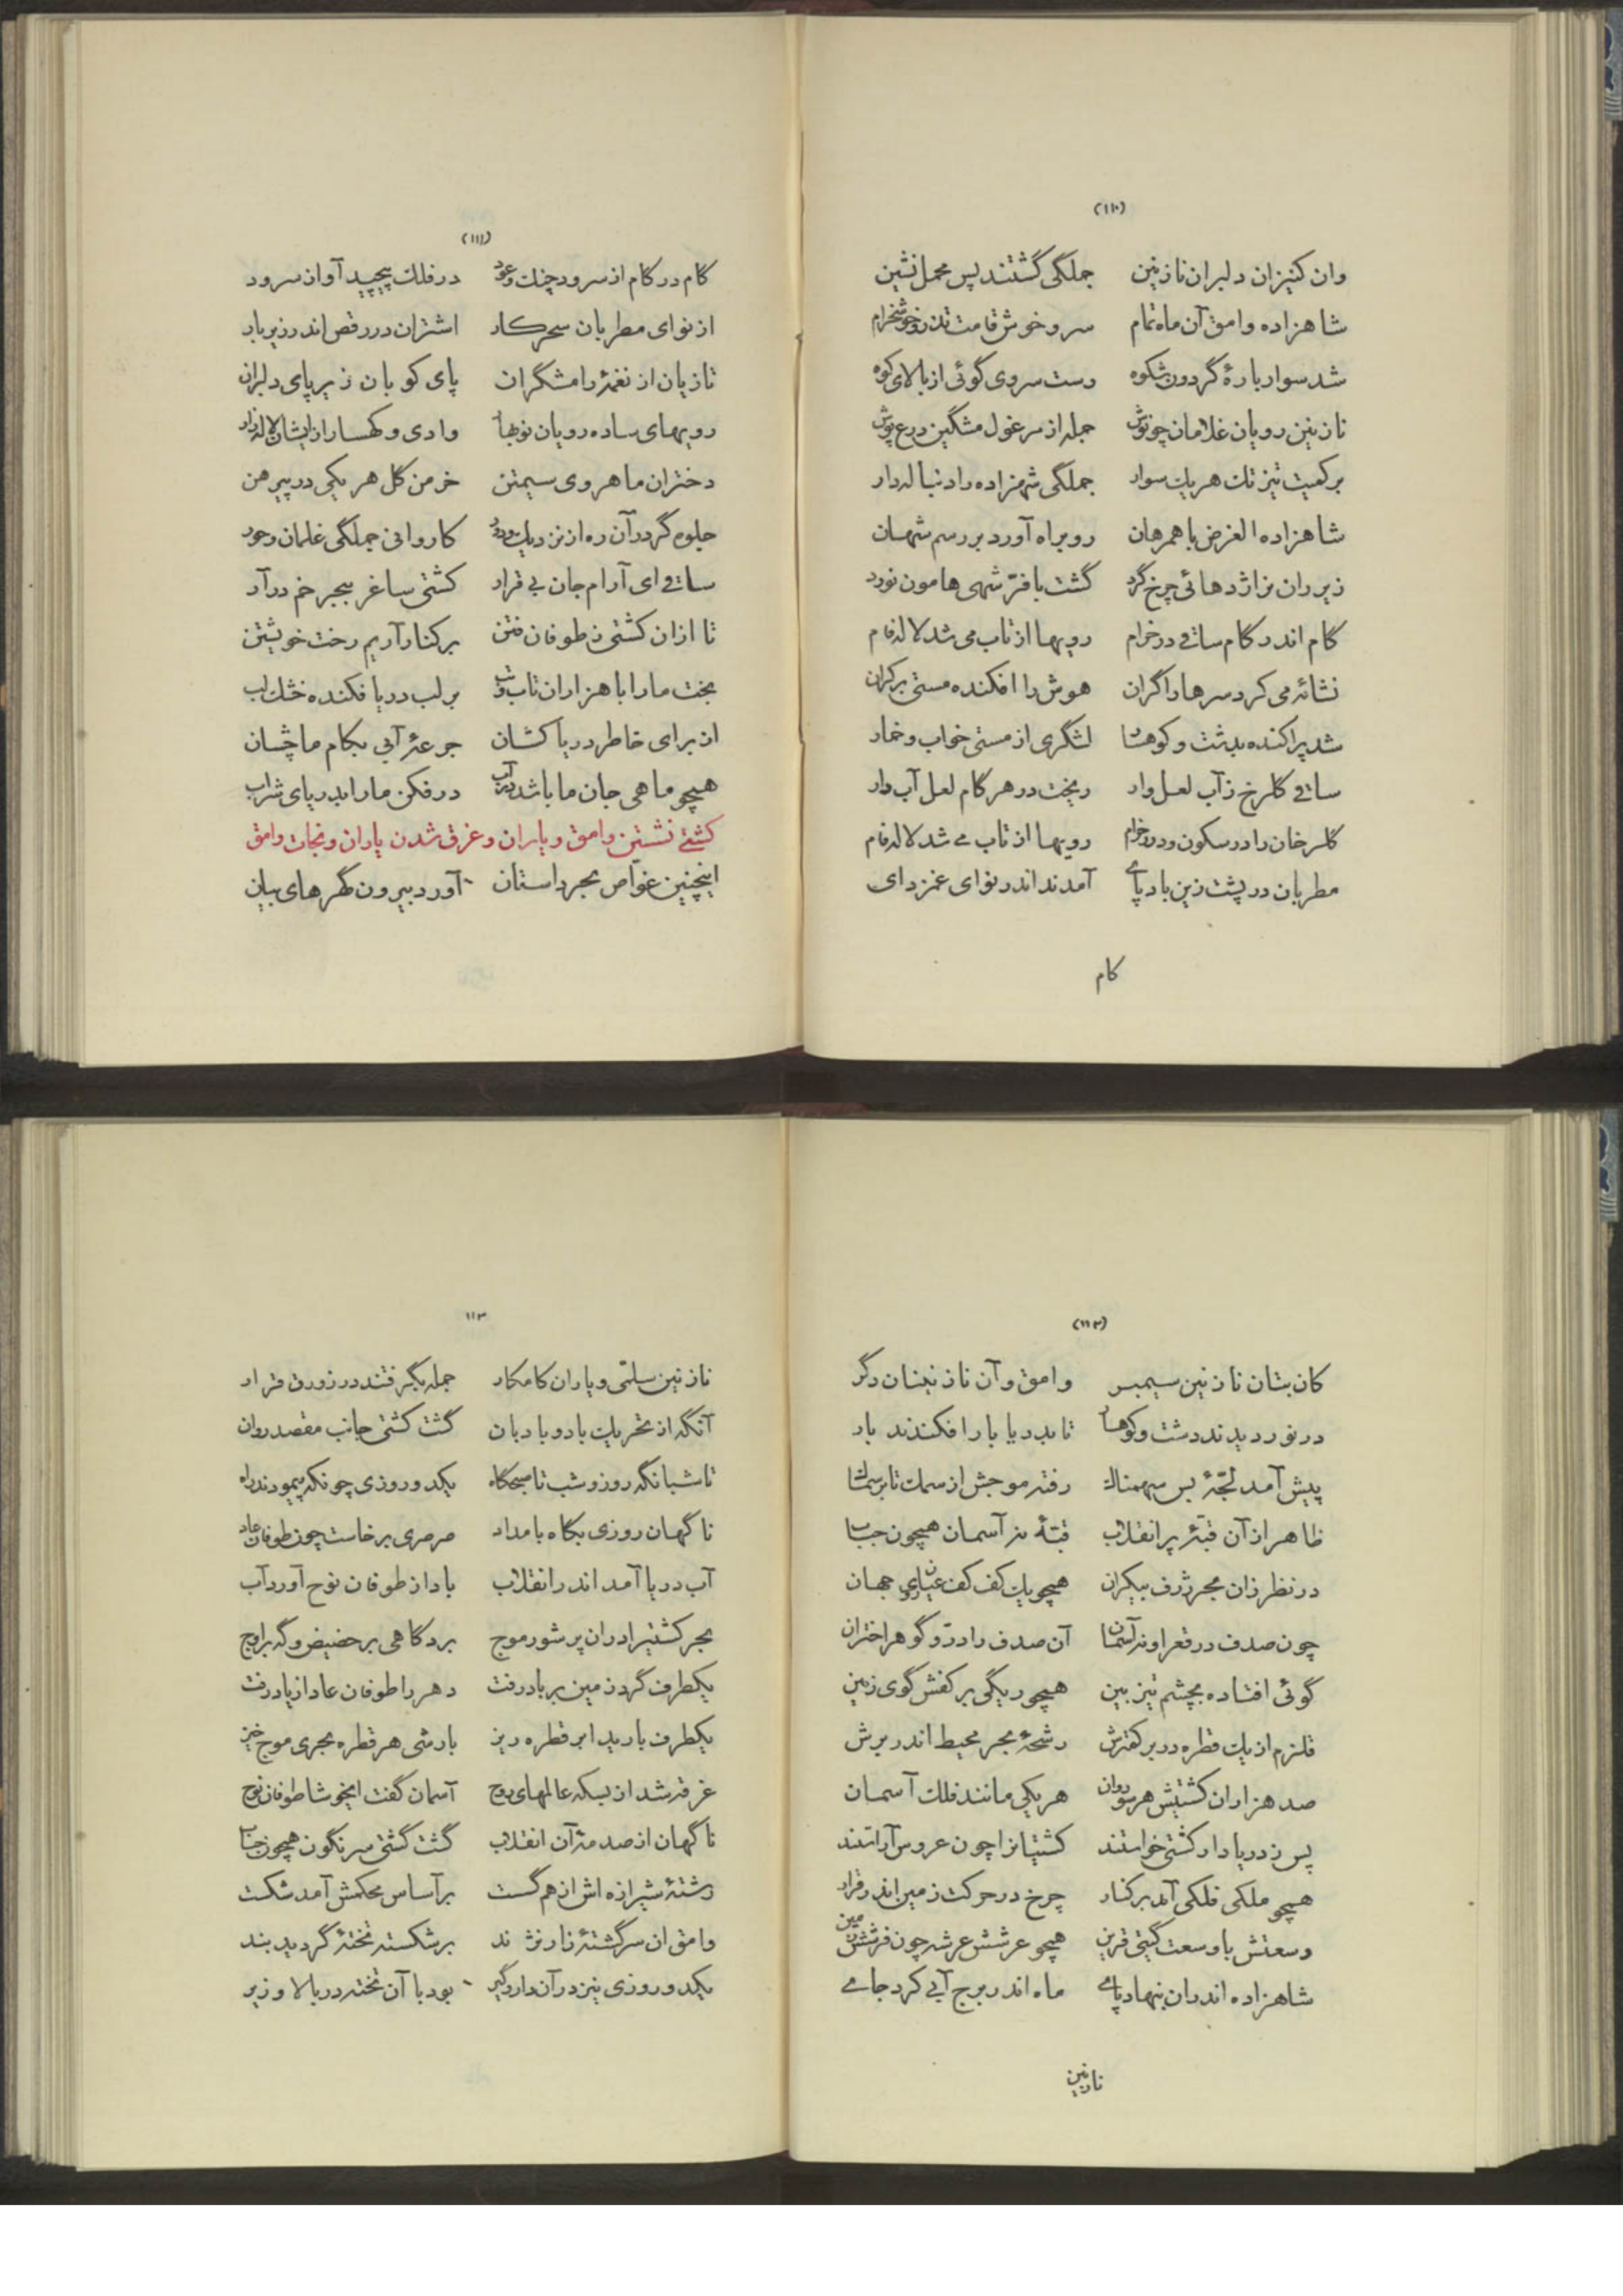 (۱۱۰)
وان کنیزان دلبران نازنین جملگی گشتند پس محمل نشین
شاهزاده وامق آن ماه تمام سرو خوش قامت تذرو خوشخرام
شد سوار بارهٔ گردون شکوه رست سروی گوئی از بالای کوه
نازنین رویان غلامان چو نوش جمله از مرغول مشگین درع پوش
بر کمیت تیز تک هر یک سوار جملگی شهزاده را دنباله دار
شاهزاده الغرض با همرهان رو براه آورد بر رسم شهان
زیر ران نر اژدهائی چرخ گرد گشت با فرّ شهی هامون نورد
گام اندر گام ساقی در خرام رویها از تاب می شد لاله فام
نشائه می کرد سرها را گران هوش را افکنده مستی بر کران
شد پراکنده بدشت و کوهسار لشگری از مستی خواب و خمار
ساقی گلرخ ز آب لعل وار ریخت در هر گام لعل آب دار
گلرخان را در سکون و در خرام رویها از تاب می شد لاله فام
مطربان در پشت زین باد پای آمدند اندر نوای غمزدای
کام
(۱۱۱)
کام در کام از سرود چنگ و عود در فلک پیچید آواز سرود
از نوای مطربان سحرکار اشتران در رقص اندر زیر بار
تازیان از نغمهٔ رامشگران پای کوبان زیر پای دلبران
رویهای ساده رویان نوبهار وادی و کهسار از ایشان لاله زار
دختران ماهروی سیمتن خرمن گل هر یکی در پیرهن
جلوه گر در آن ره از نزدیک و دور کاروانی جملگی غلمان و حور
ساقی ای آرام جان بی قرار کشتی ساغر ببحر خم درآر
تا ازان کشتی ز طوفان فتن بر کنار آریم رخت خویشتن
بخت ما را با هزاران تاب و تب بر لب دریا فکنده خشک لب
از برای خاطر دریا کشان جرعهٔ آبی بکام ما چشان
همچو ماهی جان ما باشد در آب در فکن ما را بدریای شراب
کشتی نشستن وامق و یاران و غرق شدن یاران و نجات وامق
اینچنین غوّاص بحر داستان آورد بیرون گهرهای بیان
(۱۱۲)
کان بتان نازنین سیمبر وامق و آن نازنینان دگر
در نوردیدند دشت و کوهسار تا بدریا بار افکندند بار
پیش آمد لجّهٔ بس سهمناک رفته موجش از سمک تا بر سماک
ظاهر از آن قبّهٔ پر انقلاب قبّهٔ نه آسمان همچون حباب
در نظر زان بحر ژرف بیکران همچو یک کف کف عیان جهان
چون صدف در قعر او نه آسمان آن صدف را درّ و گوهر اختران
گوئی افتاده بچشم تیز بین همچو ریگی بر کفش گوی زمین
قلزم از یک قطره در بر کمترش رشحهٔ بحر محیط اندر برش
صد هزاران کشتیش هر سو روان هر یکی مانند فلک آسمان
پس ز دریا دار کشتی خواستند کشتیانرا چون عروس آراستند
همچو ملکی فلکی آمد بر کنار چرخ در حرکت زمین اندر قرار
وسعتش با وسعت گیتی قرین همچو عرشش عرشه چون فرشش زمین
شاهزاده اندران بنهاد پای ماه اندر برج آبی کرد جای
نازنین
۱۱۳
نازنین سلمی و یاران کامکار جمله بگرفتند در زورق قرار
آنگه از تحریک باد و بادبان گشت کشتی جانب مقصد روان
تا شبانگه روز و شب تا صبحگاه یکدو روزی چونکه پیمودند راه
ناگهان روزی بگاه بامداد صرصری برخاست چون طوفان عاد
آب دریا آمد اندر انقلاب باد از طوفان نوح آورد آب
بحر کشتیرا دران پر شور موج برد گاهی بر حضیض و گه بر اوج
یکطرف گرد زمین بر باد رفت دهر را طوفان عاد از یاد رفت
یکطرف بارید ابر قطره ریز بارشی هر قطره بحری موج خیز
غرقه شد از بسکه عالمهای روح آسمان گفت ایخوشا طوفان نوح
ناگهان از صدمهٔ آن انقلاب گشت کشتی سرنگون همچون حباب
رشتهٔ شیرازه اش از هم گسست بر آساس محکمش آمد شکست
وامق ان سرگشتهٔ زار نژند بر شکسته تختهٔ گردید بند
یکدو روزی نیز در آن دار و گیر بود با آن تخته در بالا و زیر